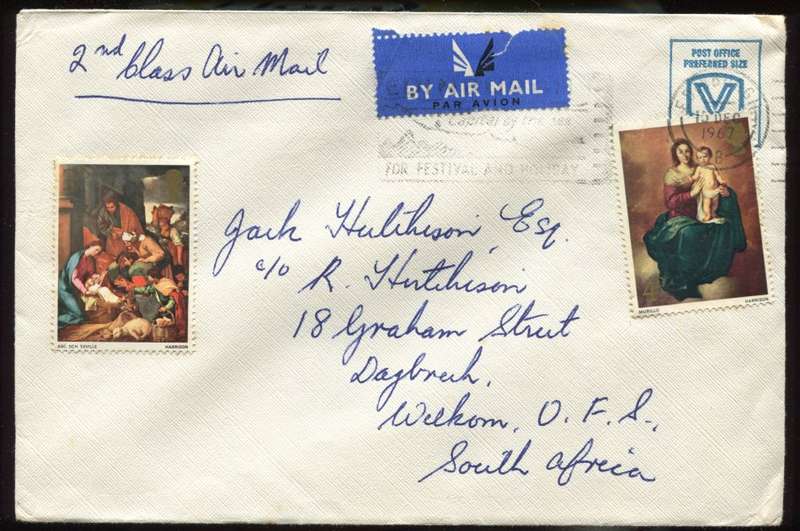 2nd Class Air Mail
BY AIR MAIL
PAR AVION
POST OFFICE
PREFERRED SIZE
DEC
1967
Capital by the sea
FOR FESTIVAL AND HOLIDAY
Jack Hutchison, Esq.
c/o R. Hutchison
18 Graham Street
Dagbreek,
Welkom, O.F.S.,
South Africa
SCH SEVILLE HARRISON
4
MURILLO HARRISON